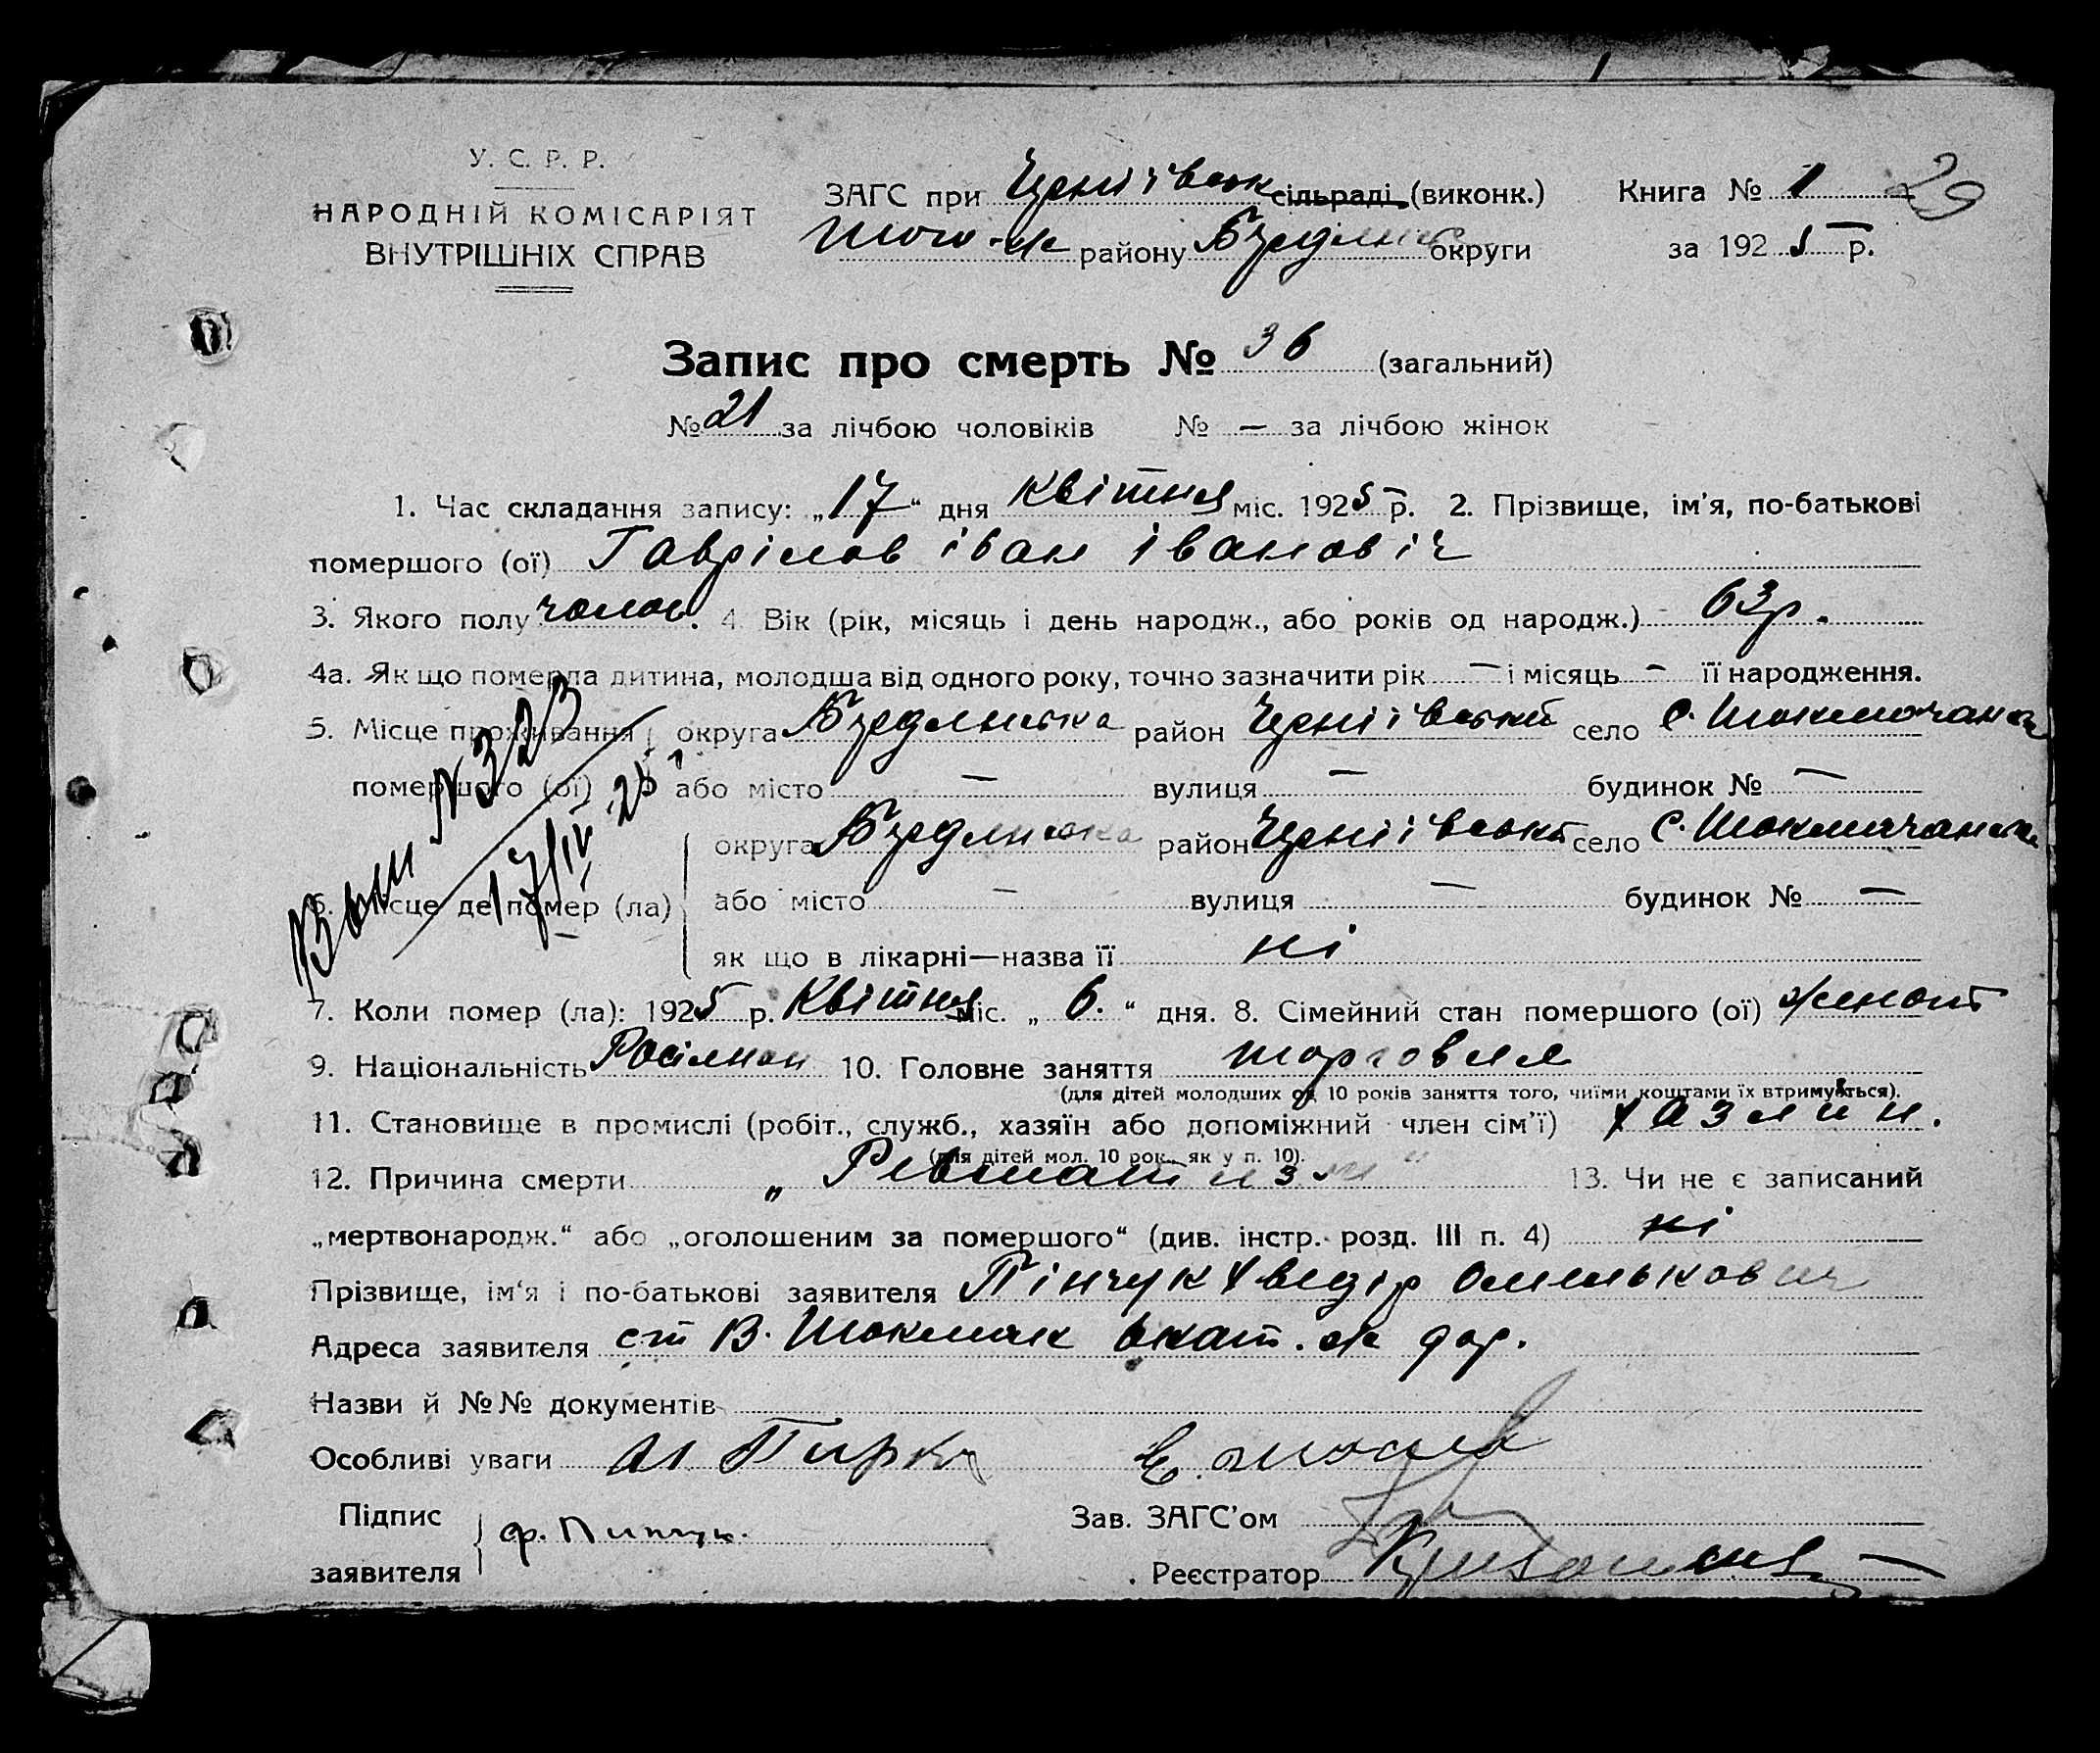 У. С. Р. Р.
НАРОДНІЙ КОМІСАРІЯТ
ВНУТРІШНІХ СПРАВ
ЗАГС при сільраді (виконк.)
Того-ж району округи
Книга № 1
29
за 1925 р.
Запис про смерть № 36 (загальний)
№ 21 за лічбою чоловіків № — за лічбою жінок
1. Час складання запису: „17“ дня квітня міс. 1925 р. 2. Прізвище, ім'я, по-батькові
помершого (ої) Гаврілов іван івановіч
3. Якого полу чолов. 4. Вік (рік, місяць і день народж., або років од народж.) 63 р.
4а. Як що померла дитина, молодша від одного року, точно зазначити рік — і місяць — її народження.
5. Місце проживання округа район село
помершого (ої) або місто — вулиця — будинок № —
№ 323
17/IV 25
округа район село
6. Місце де помер (ла) або місто — вулиця — будинок № —
як що в лікарні—назва її ні
7. Коли помер (ла): 1925 р. Квітня міс. „6.“ дня. 8. Сімейний стан помершого (ої) женат
9. Національність 10. Головне заняття торговля
(для дітей молодших од 10 років заняття того, чиїми коштами їх втримується).
11. Становище в промислі (робіт., служб., хазяїн або допоміжний член сім'ї) хазяин.
(для дітей мол. 10 рок., як у п. 10).
12. Причина смерти „Ревматизм“ 13. Чи не є записаний
„мертвонародж.“ або „оголошеним за помершого“ (див. інстр. розд. III п. 4) ні
Прізвище, ім'я і по-батькові заявителя Пінчук Хведір
Адреса заявителя ст В. Токмак екат. ж дор.
Назви й №№ документів
Особливі уваги
Підпис
заявителя ф. Пинчук.
Зав. ЗАГС'ом
Реєстратор